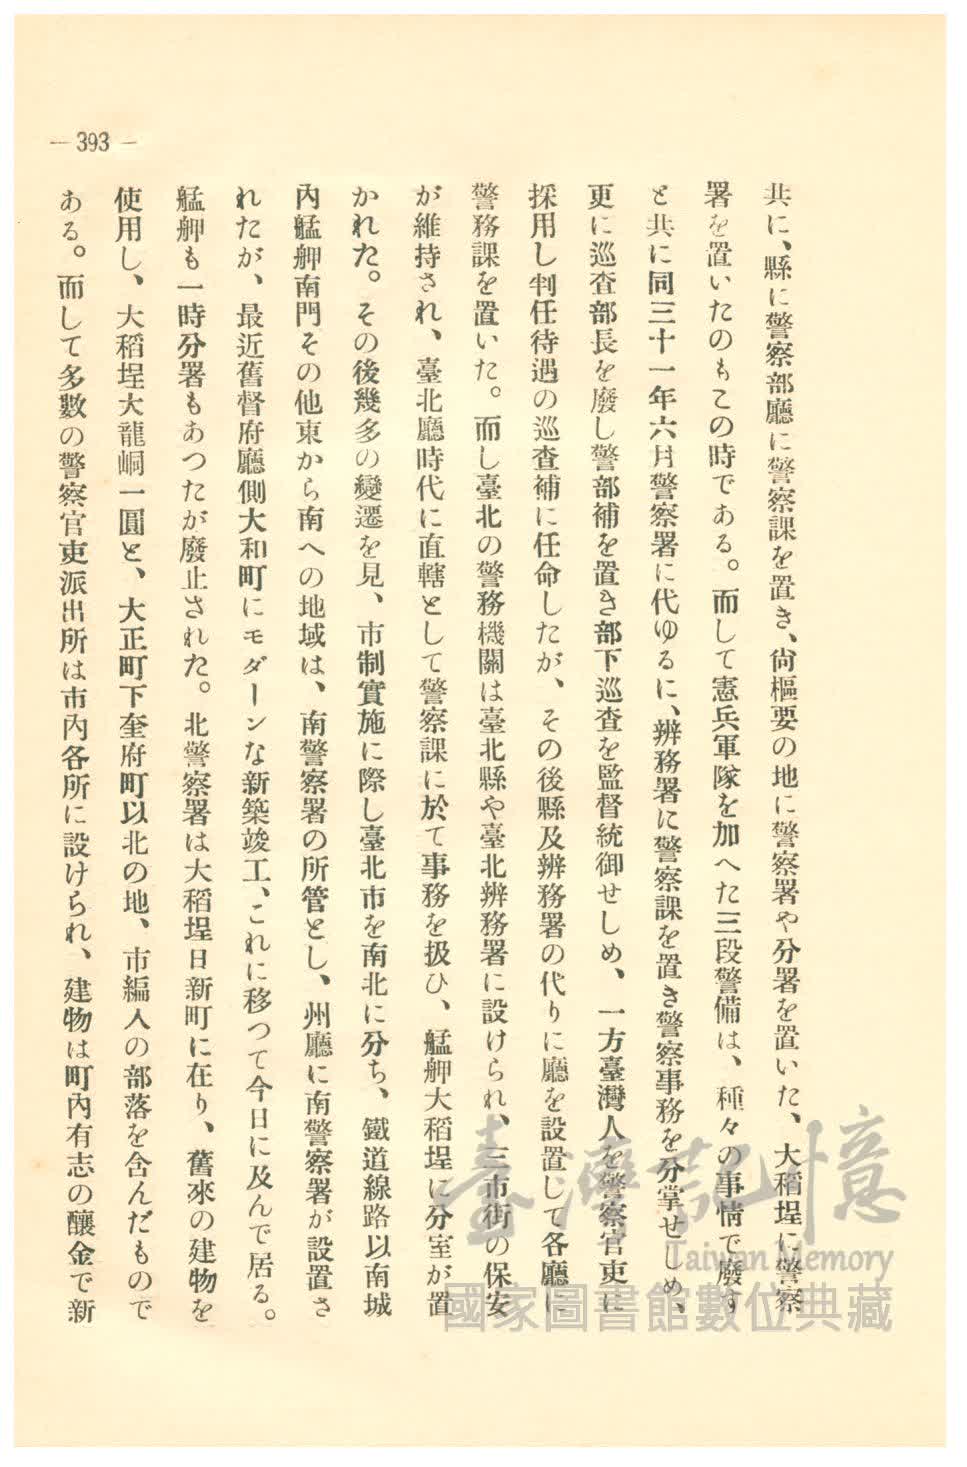 — 393 —
共に、縣に警察部廳に警察課を置き、尙樞要の地に警察署や分署を置いた、大稻埕に警察
署を置いたのもこの時である。而して憲兵軍隊を加へた三段警備は、種々の事情で廢す
と共に同三十一年六月警察署に代ゆるに、辨務署に警察課を置き警察事務を分掌せしめ、
更に巡査部長を廢し警部補を置き部下巡査を監督統御せしめ、一方臺灣人を警察官吏に
採用し判任待遇の巡査補に任命したが、その後縣及辨務署の代りに廳を設置して各廳に
警務課を置いた。而し臺北の警務機關は臺北縣や臺北辨務署に設けられ、三市街の保安
が維持され、臺北廳時代に直轄として警察課に於て事務を扱ひ、艋舺大稻埕に分室が置
かれた。その後幾多の變遷を見、市制實施に際し臺北市を南北に分ち、鐵道線路以南城
內艋舺南門その他東から南への地域は、南警察署の所管とし、州廳に南警察署が設置さ
れたが、最近舊督府廳側大和町にモダーンな新築竣工、これに移つて今日に及んで居る。
艋舺も一時分署もあつたが廢止された。北警察署は大稻埕日新町に在り、舊來の建物を
使用し、大稻埕大龍峒一圓と、大正町下奎府町以北の地、市編入の部落を含んだもので
ある。而して多數の警察官吏派出所は市內各所に設けられ、建物は町內有志の釀金で新
臺灣記憶
Taiwan Memory
國家圖書館數位典藏